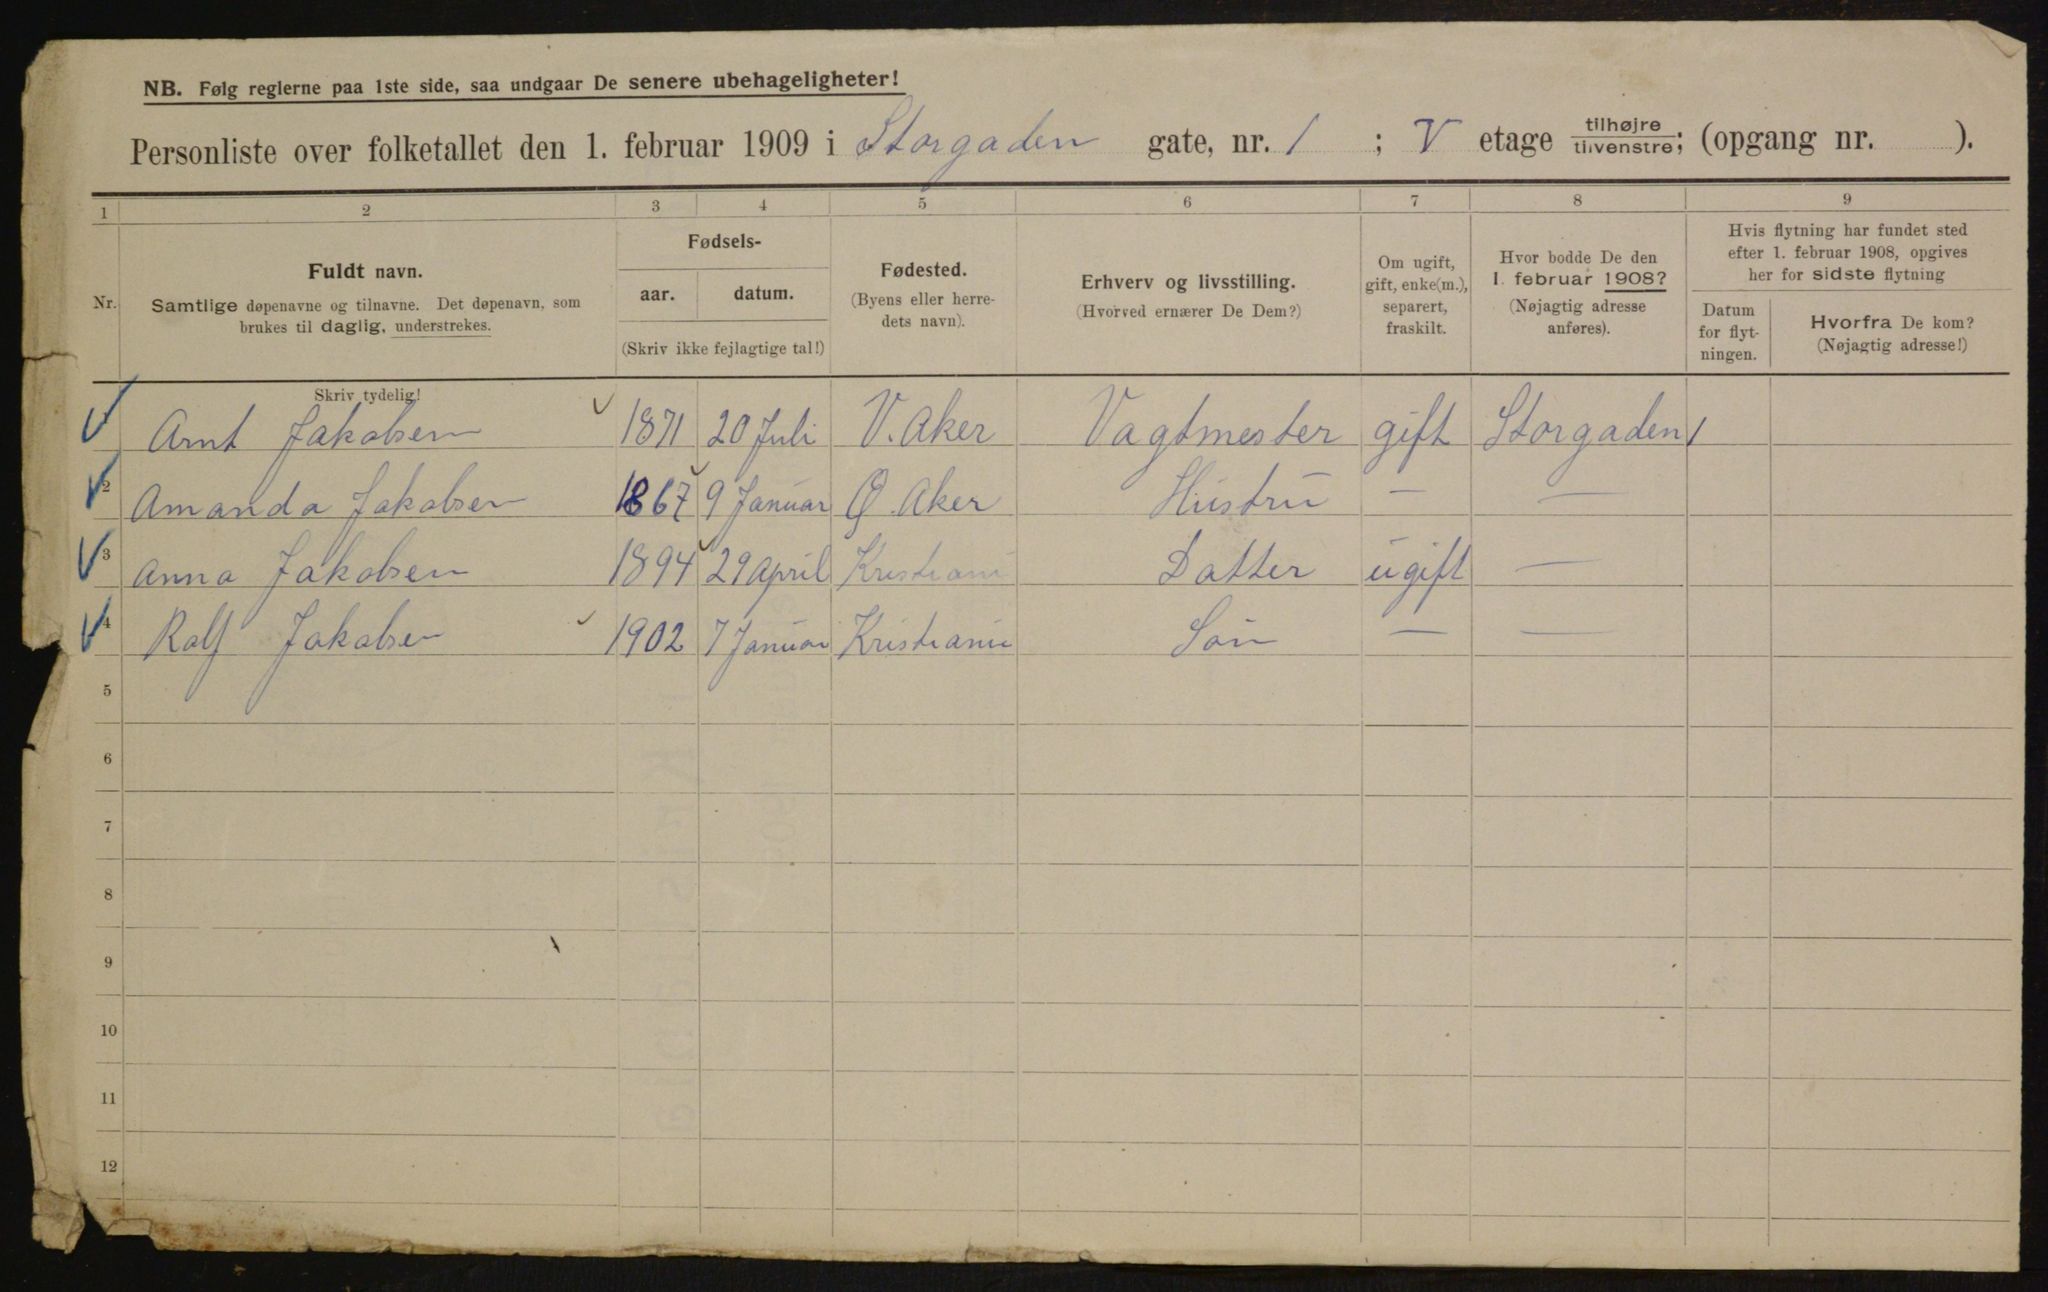 NB. Følg reglerne paa 1ste side, saa undgaar De senere ubehageligheter!
Personliste over folketallet den 1. februar 1909 i Storgaden gate, nr. 1 ; V etage tilhøjre tilvenstre; (opgang nr. ).
1 2 3 4 5 6 7 8 9
Nr.
Fuldt navn.
Samtlige døpenavne og tilnavne. Det døpenavn, som
brukes til daglig, understrekes.
Fødsels-
aar. datum.
(Skriv ikke fejlagtige tal!)
Fødested.
(Byens eller herre-
dets navn).
Erhverv og livsstilling.
(Hvorved ernærer De Dem?)
Om ugift,
gift, enke(m.),
separert,
fraskilt.
Hvor bodde De den
1. februar 1908?
(Nøjagtig adresse
anføres).
Hvis flytning har fundet sted
efter 1. februar 1908, opgives
her for sidste flytning
Datum
for flyt-
ningen.
Hvorfra De kom?
(Nøjagtig adresse!)
Skriv tydelig!
Arnt Jakobsen 1871 20 Juli V. Aker Vagtmester gift Storgaden 1
2 Amanda Jakobsen 1867 9 Januar Ø. Aker Hustru — —
3 Anna Jakobsen 1894 29 April Kristiani Datter ugift —
4 Rolf Jakobsen 1902 7 Januar Kristiania Sön — —
5
6
7
8
9
10
11
12